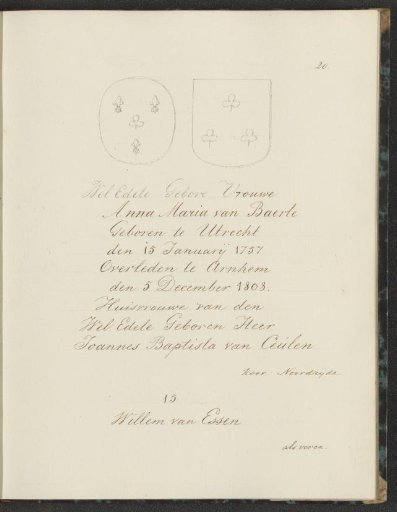 20.
Wel Edele Gebore Vrouwe
Anna Maria van Baerle
Geboren te Utrecht
den 15 Januarij 1757
Overleden te Arnhem
den 5 December 1808.
Huisvrouwe van den
Wel Edele Geboren Heer
Joannes Baptista van Ceülen
Noordzyde
15
Willem van Essen
als voren